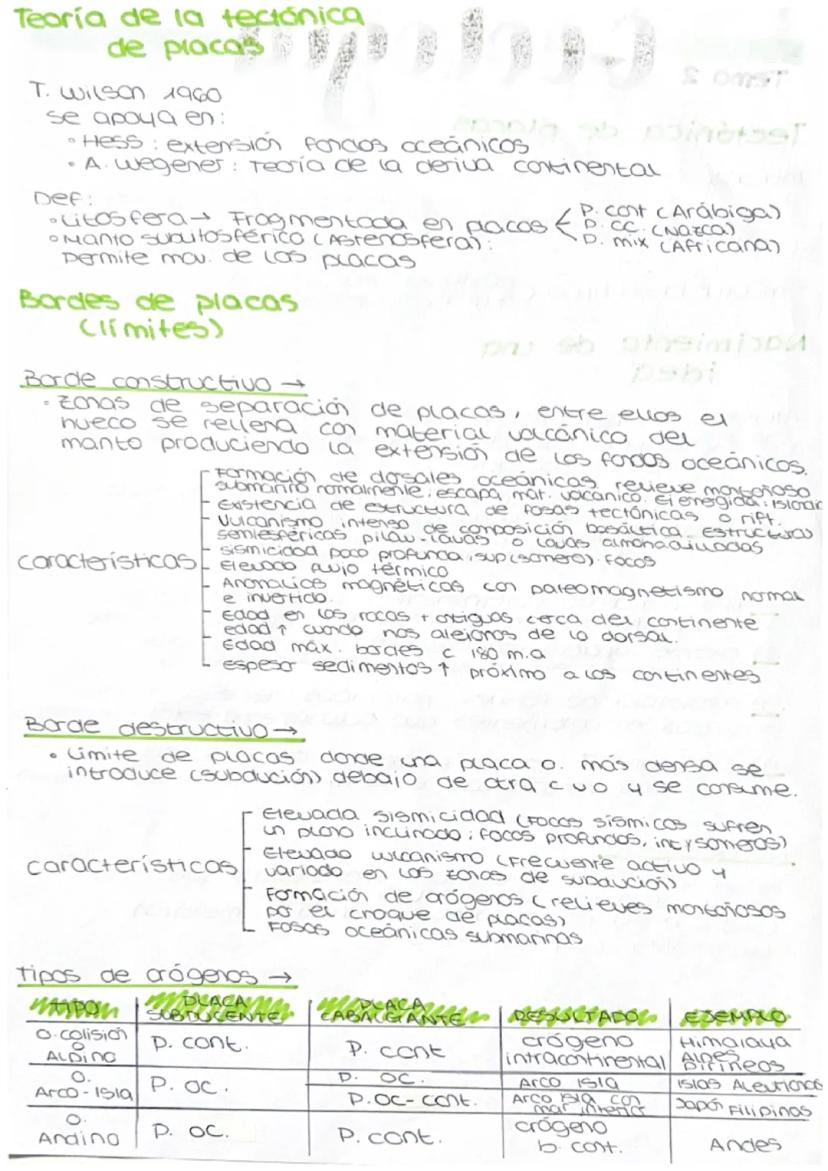 Teoría de la tectónica
de placas
T. Wilson 1960
se apoya en:
• Hess: extensión fondos oceánicos
• A. Wegener: Teoría de la deriva continental
Def:
• Litosfera → Fragmentada en placas < P. cont (Arábiga)
P. oc. (Nazca)
P. mix (Africana)
• Manto sublitosférico (Astenosfera):
Permite mov. de las placas
Bordes de placas
(límites)
Borde constructivo →
• Zonas de separación de placas, entre ellos el
hueco se rellena con material volcánico del
manto produciendo la extensión de los fondos oceánicos.
características
Formación de dorsales oceánicas, relieve montañoso
submarino normalmente, escapa mat. volcánico. Ej emergida:
Existencia de estructura de fosas tectónicas o rift.
Vulcanismo intenso de composición basáltica, estructuras
semiesféricas pillow-lavas o lavas almohadilladas
Sismicidad poco profunda, sup (somero). Focos
Elevado flujo térmico
Anomalías magnéticas con paleomagnetismo normal
e invertido.
Edad en las rocas + atiguas cerca del continente
edad ↑ cuando nos alejamos de la dorsal.
Edad máx. bordes c 180 m.a
espesor sedimentos ↑ próximo a los continentes
Borde destructivo →
• Límite de placas donde una placa o. más densa se
introduce (subdución) debajo de otra c u o y se consume.
características
Elevada sismicidad (Focos sísmicos sufren
un plano inclinado: focos profundos, int y someros)
Elevado vulcanismo (Frecuente activo y
variado en las zonas de subdución)
Formación de orógenos (relieves montañosos
por el choque de placas)
Fosas oceánicas submarinas
Tipos de orógenos →
TIPO PLACA SUBDUCENTE PLACA CABALGANTE RESULTADO EJEMPLO
O. colisión o Alpino P. cont. P. cont orógeno intracontinental Himalaya Alpes Pirineos
O. Arco-Isla P. oc. P. oc. Arco isla Islas Aleutianas
P. oc-cont. Arco isla con mar interior Japón Filipinas
O. Andino P. oc. P. cont. orógeno b. cont. Andes